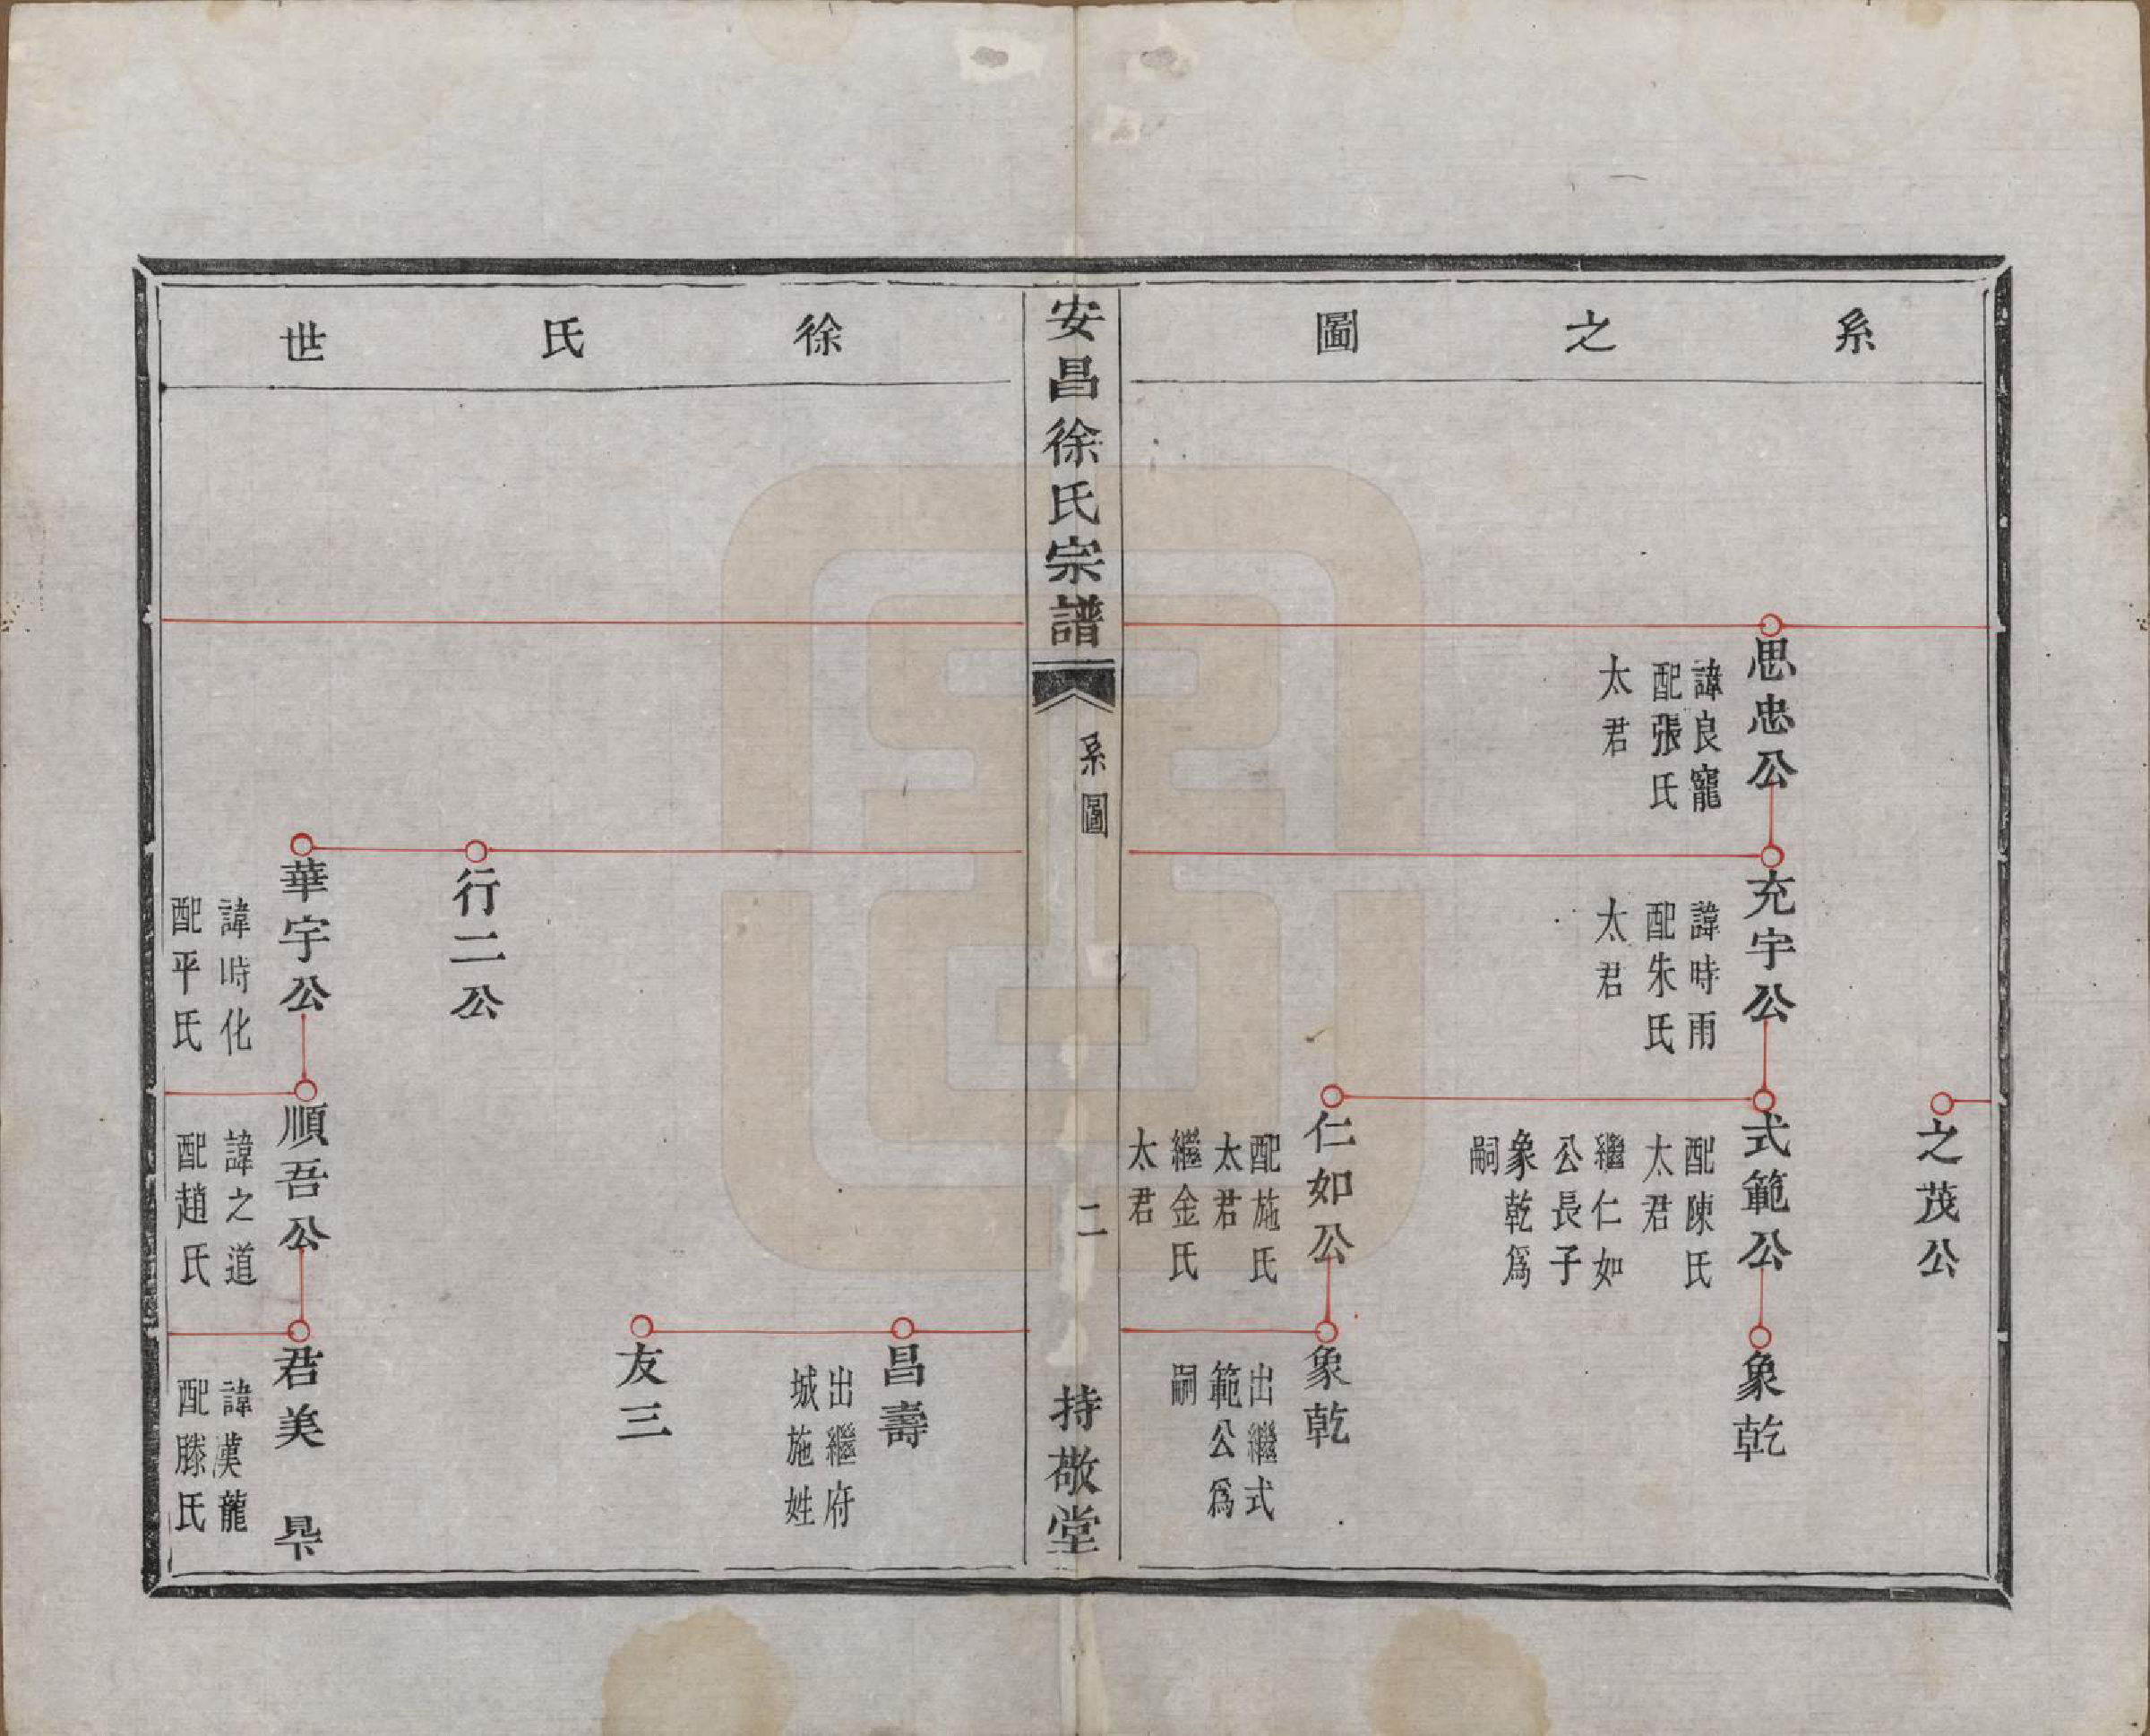 系之圖
之茂公
思忠公
諱良寵
配張氏
太君
充宇公
諱時雨
配朱氏
太君
式範公
配陳氏
太君
繼仁如
公長子
象乾爲
嗣
象乾
仁如公
配施氏
太君
繼金氏
太君
象乾
出繼式
範公爲
嗣
安昌徐氏宗譜
系圖
二
持敬堂
徐氏世
昌壽
出繼府
城施姓
友三
行二公
華宇公
諱時化
配平氏
順吾公
諱之道
配趙氏
君美
諱漢龍
配滕氏